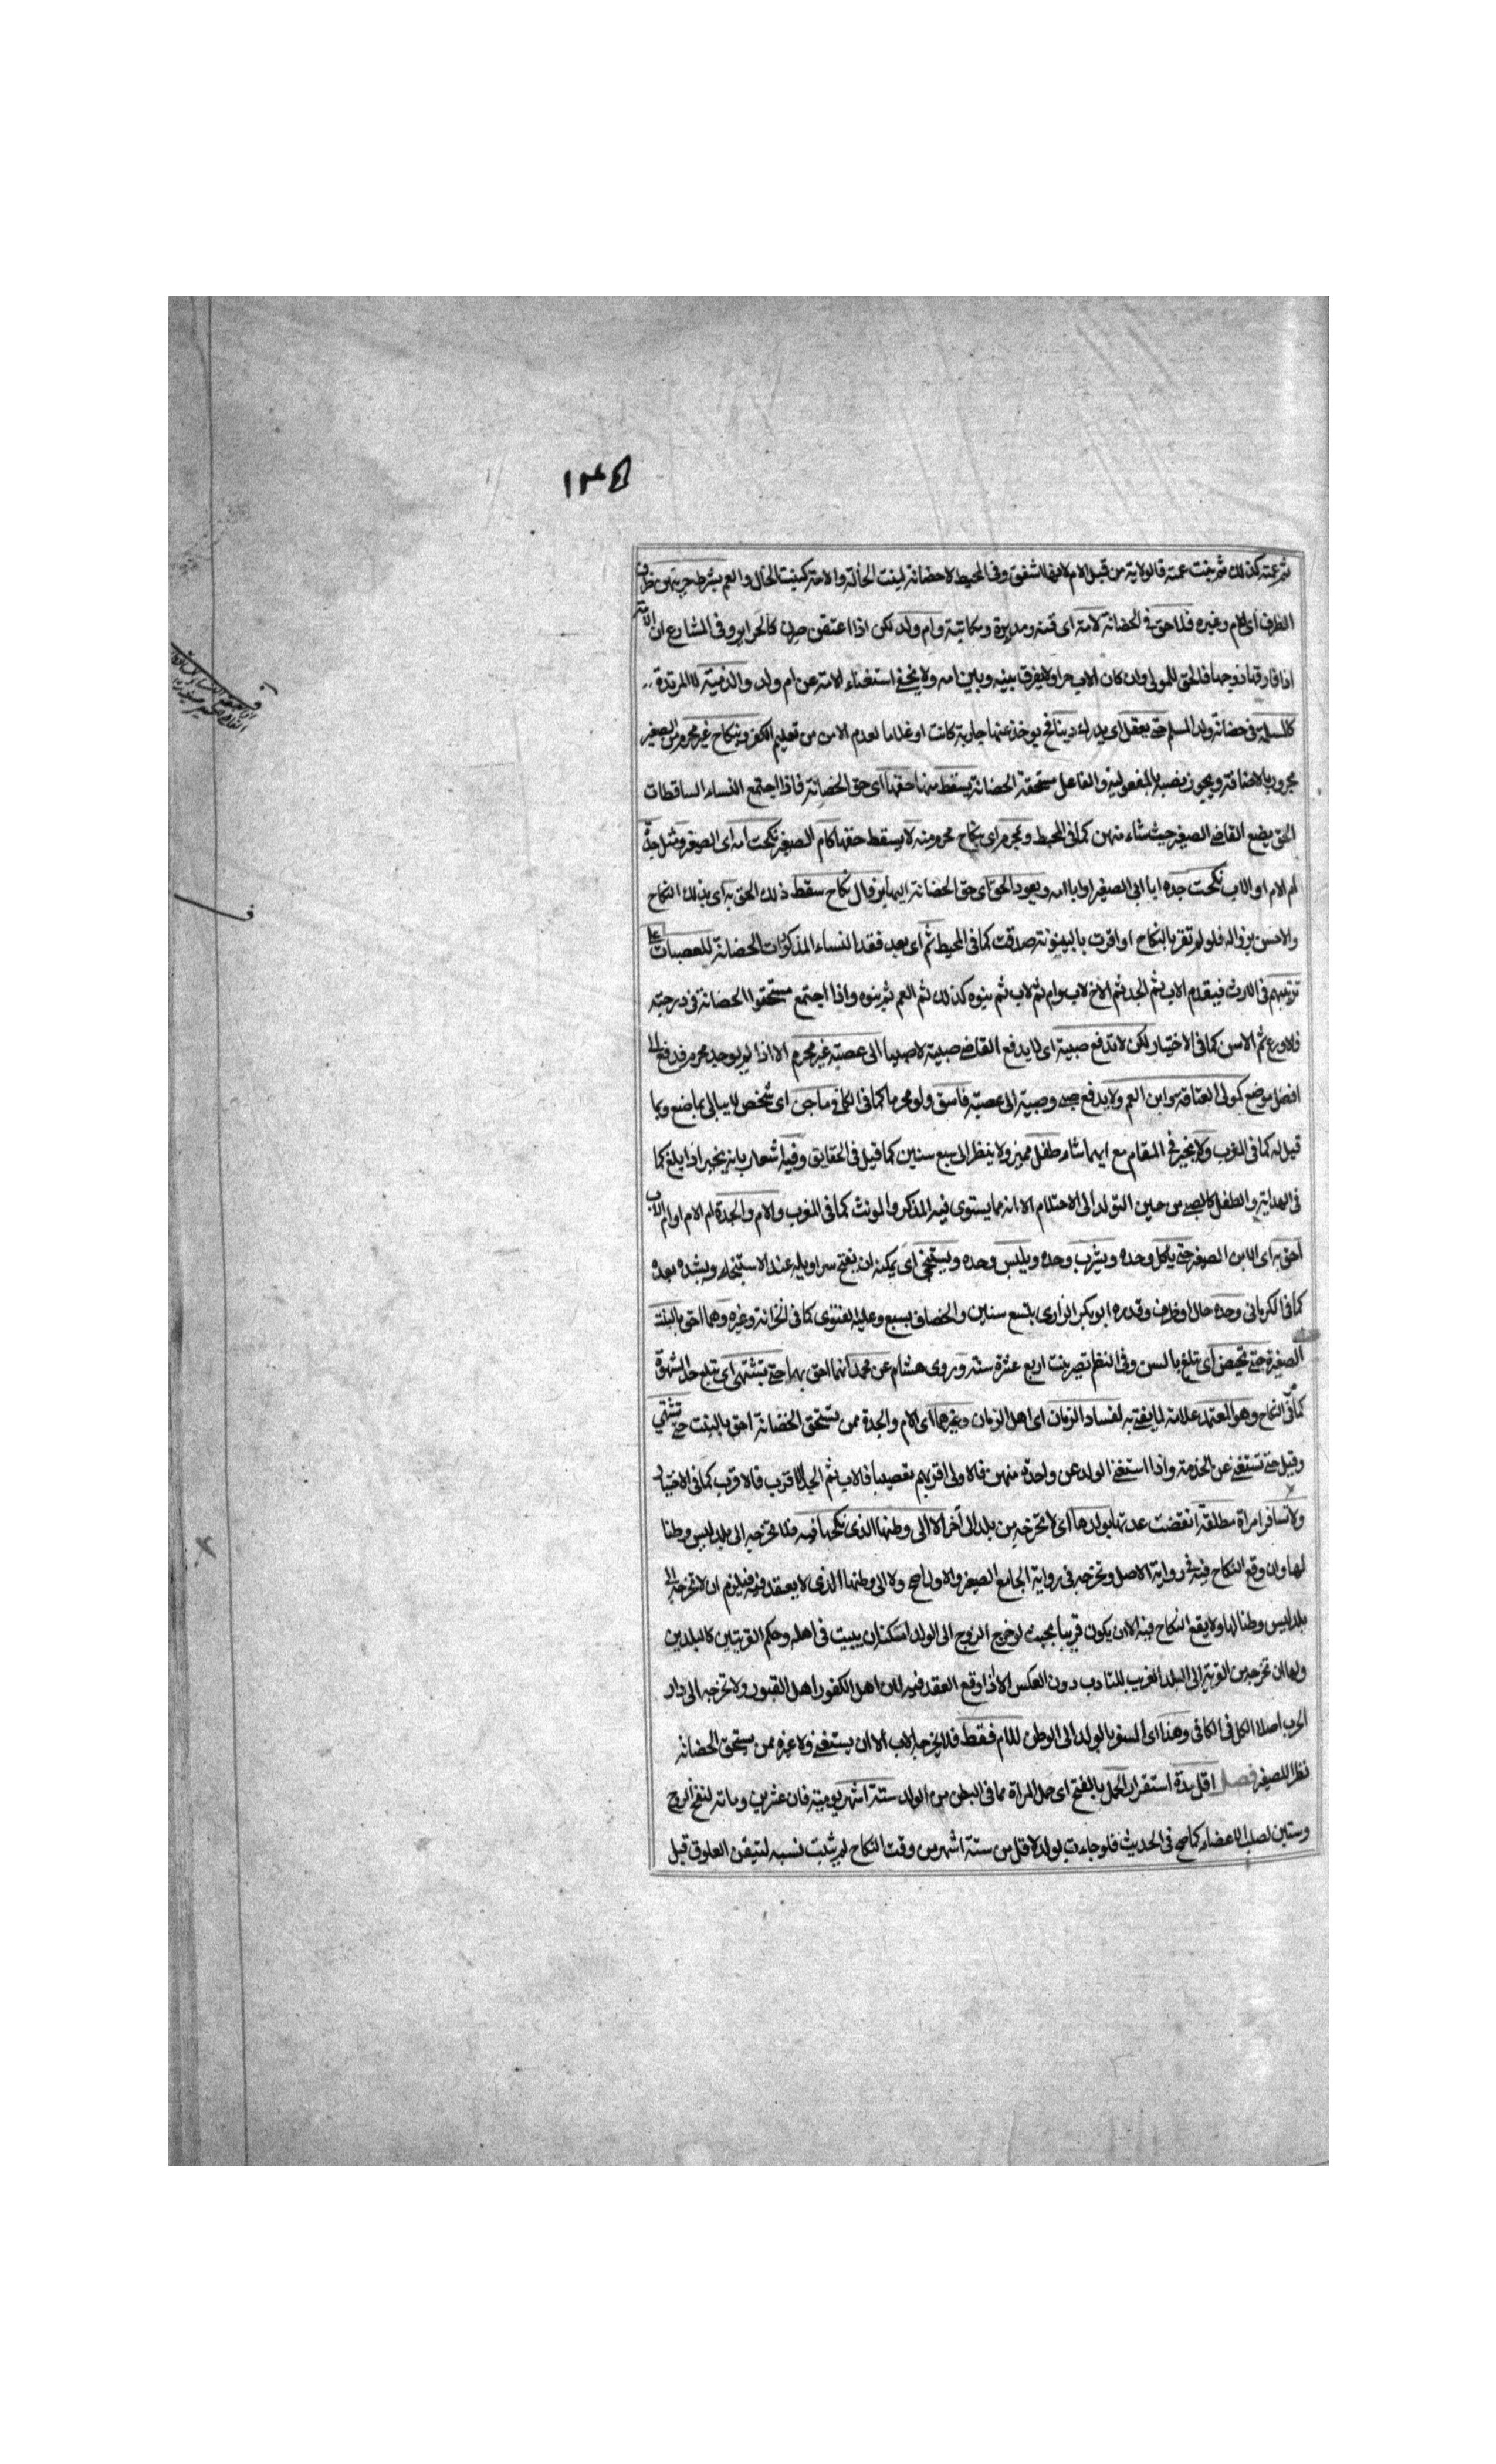 ١٣٤
ثم عمته كذلك ثم بنت عمته فالولاية من قبل الام لانها اشفق وفى المحيط لا حضانة لبنت الخالة والامة كبنت الخال والعم بشرط حريتهن
الظرف اى للام وغيره فلا حق فى الحضانة لامة اى قنة ومدبرة ومكاتبة وام ولد لكن اذا اعتقن صرن كالحراير وفى المشارع ان الامة
اذا فارقها زوجها فالحق للمولى وان كان الاب حرا ولا يفرق بينه وبين امه ولا يخفى استغناء الامة عن ام ولد والذمية لا المرتدة
كالمسلمة فى حضانة ولد المسلم حتى يعقل اى يدرك دينا فح يوخذ عنها جارية كانت او غلاما لعدم الامن من تعليم الكفر وبنكاح غير محرم من الصغير
مجرور بالاضافة ويجوز نصبه بالمفعولية والفاعل مستحقة الحضانة يسقط منها حقها اى حق الحضانة فاذا اجتمع النساء الساقطات
الحق يضع القاضى الصغير حيث شاء منهن كما فى المحيط وبمحرم اى بنكاح محرم منه لا يسقط حقها كام الصغير نكحت امه اى الصغير ومثل جدة
ام الام او الاب نكحت جده ابا ابى الصغير او ابا امه ويعود الحق اى حق الحضانة اليها بزوال نكاح سقط ذلك الحق به اى بذلك النكاح
والاحسن بزواله فلو لم تقر بالنكاح او اقرت بالبينونة صدقت كما فى المحيط ثم اى بعد فقد النساء المذكورات الحضانة للعصبات على
ترتيبهم فى الارث فيقدم الاب ثم الجد ثم الاخ لاب وام ثم لاب ثم بنوه كذلك ثم العم ثم بنوه واذا اجتمع مستحقوا الحضانة فى درجة
فالاورع ثم الاسن كما فى الاختيار لكن لا تدفع صبية اى لا يدفع القاضى صبية لا صبيا الى عصبة غير محرم الا اذا لم يوجد محرم فدفع الى
افضل موضع كمولى العتاقة وابن العم ولا يدفع صبى وصبية الى عصبة فاسق ولو محرما كما فى الكافى وماجن اى شخص لا يبالى بما صنع وبما
قيل له كما فى المغرب ولا يخير فى المقام مع ايهما شاء طفل مميز ولا ينظر الى سبع سنين كما قيل فى الحقايق وفيه اشعار بانه يخير اذا بلغ كما
فى الهداية والطفل كالصبى من حين التولد الى الاحتلام الا انه مما يستوى فيه المذكر والمونث كما فى المغرب والام والجدة ام الام او ام الاب
احق به اى الابن الصغير حتى ياكل وحده ويشرب وحده ويلبس وحده ويستنجى اى يمكنه ان يفتح سراويله عند الاستنجاء ويشده بعده
كما فى الكرمانى وحده حال او ظرف وقدره ابو بكر الرازى بتسع سنين والخصاف بسبع وعليه الفتوى كما فى الخزانة وغيره وهما احق بالبنت
الصغيرة حتى تحيض اى تبلغ بالسن وفى النظم تصير بنت اربع عشرة سنة وروى هشام عن محمد انهما احق بها حتى تشتهى اى تبلغ حد الشهوة
كما فى النكاح وهو المعتمد علامة لما يفتى به لفساد الزمان اى اهل الزمان وغيرهما اى الام والجدة ممن يستحق الحضانة احق بالبنت حتى تشتهى
وقيل حتى تستغنى عن الخدمة واذا استغنى الولد عن واحدة منهن فالاولى اقربهم تعصيبا فالاب ثم الجد الاقرب فالاقرب كما فى الاختيار
ولا تسافر امراة مطلقة انقضت عدتها بولدها اى لا تخرجه من بلد الى آخر الا الى وطنها الذى نكحها فيه فلا تخرجه الى بلد ليس وطنا
لها وان وقع النكاح فيه فى رواية الاصل وتخرجه فى رواية الجامع الصغير والاول اصح ولا الى وطنها الذى لا يعقد فيه فيلزم ان لا تخرجه الى
بلد ليس وطنا لها ولا يقع النكاح فيه الا ان يكون قريبا بحيث لو خرج الزوج الى الولد امكنه ان يبيت فى اهله وحكم القريتين كالبلدين
ولها ان تخرجه من القرية الى البلد القريب للتادب دون العكس الا اذا وقع العقد فيه لان اهل الكفور اهل القبور ولا تخرجه الى دار
الحرب اصلا الكل فى الكافى وهذا اى السفر بالولد الى الوطن للام فقط فلا يخرجه الاب الا ان يستغنى ولا غيره ممن يستحق الحضانة
نظرا للصغير فصل اقل مدة استقرار الحمل بالفتح اى حمل المراة مما فى البطن من الولد ستة اشهر يومية فان عشرين ومائة لنفخ الروح
وستين لصلب الاعضاء كما صح فى الحديث فلو جاءت بولد لاقل من ستة اشهر من وقت النكاح لم يثبت نسبه لتيقن العلوق قبل